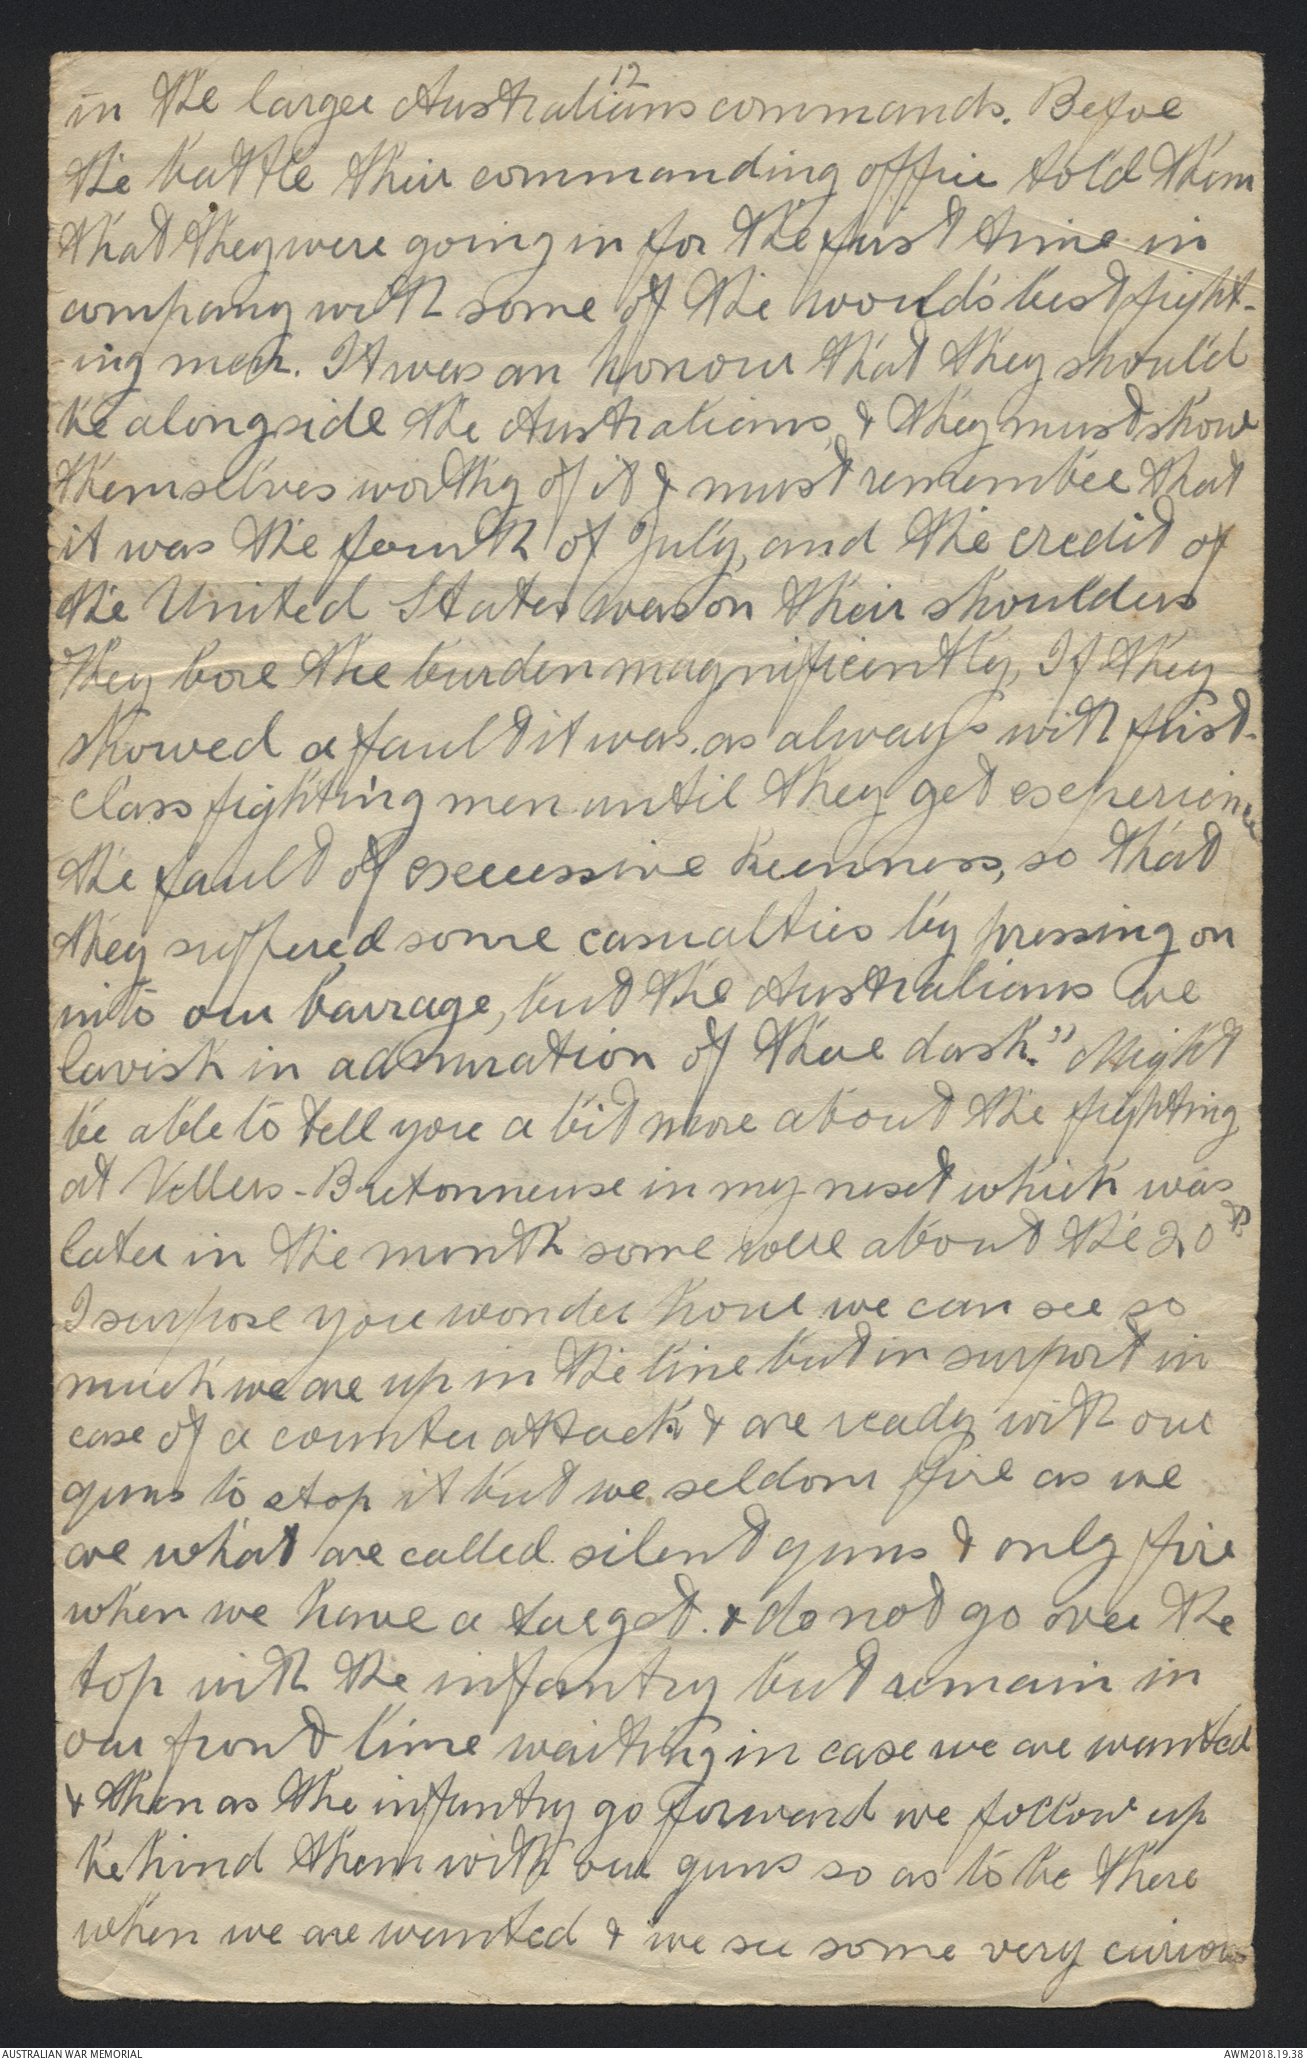 12
in the larger Australians commands. Before
the battle their commanding officer told them
that they were going in for the first time in
company with some of the world's best fight-
ing men. It was an honour that they should
be alongside the Australians, & they must show
themselves worthy of it & must remember that
it was the fourth of July, and the credit of
the United States was on their shoulders
They bore the burden magnificently, If they
showed a fault it was, as always with first-
class fighting men until they get experience
the fault of excessive keenness, so that
they suffered some casualties by pressing on
into our barrage, but the Australians are
lavish in admiration of there dash." Might
be able to tell you a bit more about the fighting
at Villers-Bretonneuse in my next which was
later in the month some were about the 20th
I surpose you wonder how we can see so
much we are up in the line but in surport in
case of a counter attack & are ready with our
guns to stop it but we seldom fire as we
are what are called silent guns & only fire
when we have a target. & do not go over the
top with the infantry but remain in
our front line waiting in case we are wanted
& then as the infantry go forward we follow up
behind them with our guns so as to be there
when we are wanted & we see some very curious
AUSTRALIAN WAR MEMORIAL
AWM2018.19.38